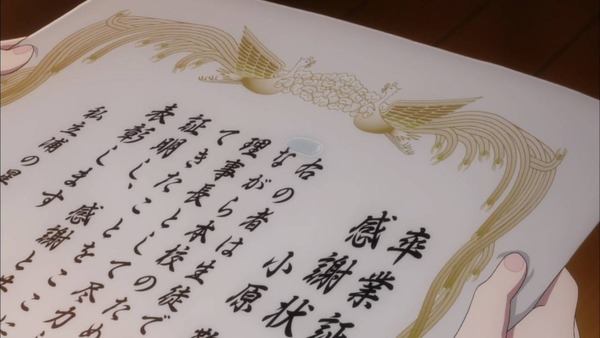 卒業証
感謝状
小原
右の者は生徒で
ながら本校のため
理事長として尽力
てきたことをここ
証明し、感謝とと
表彰します
私立浦の星